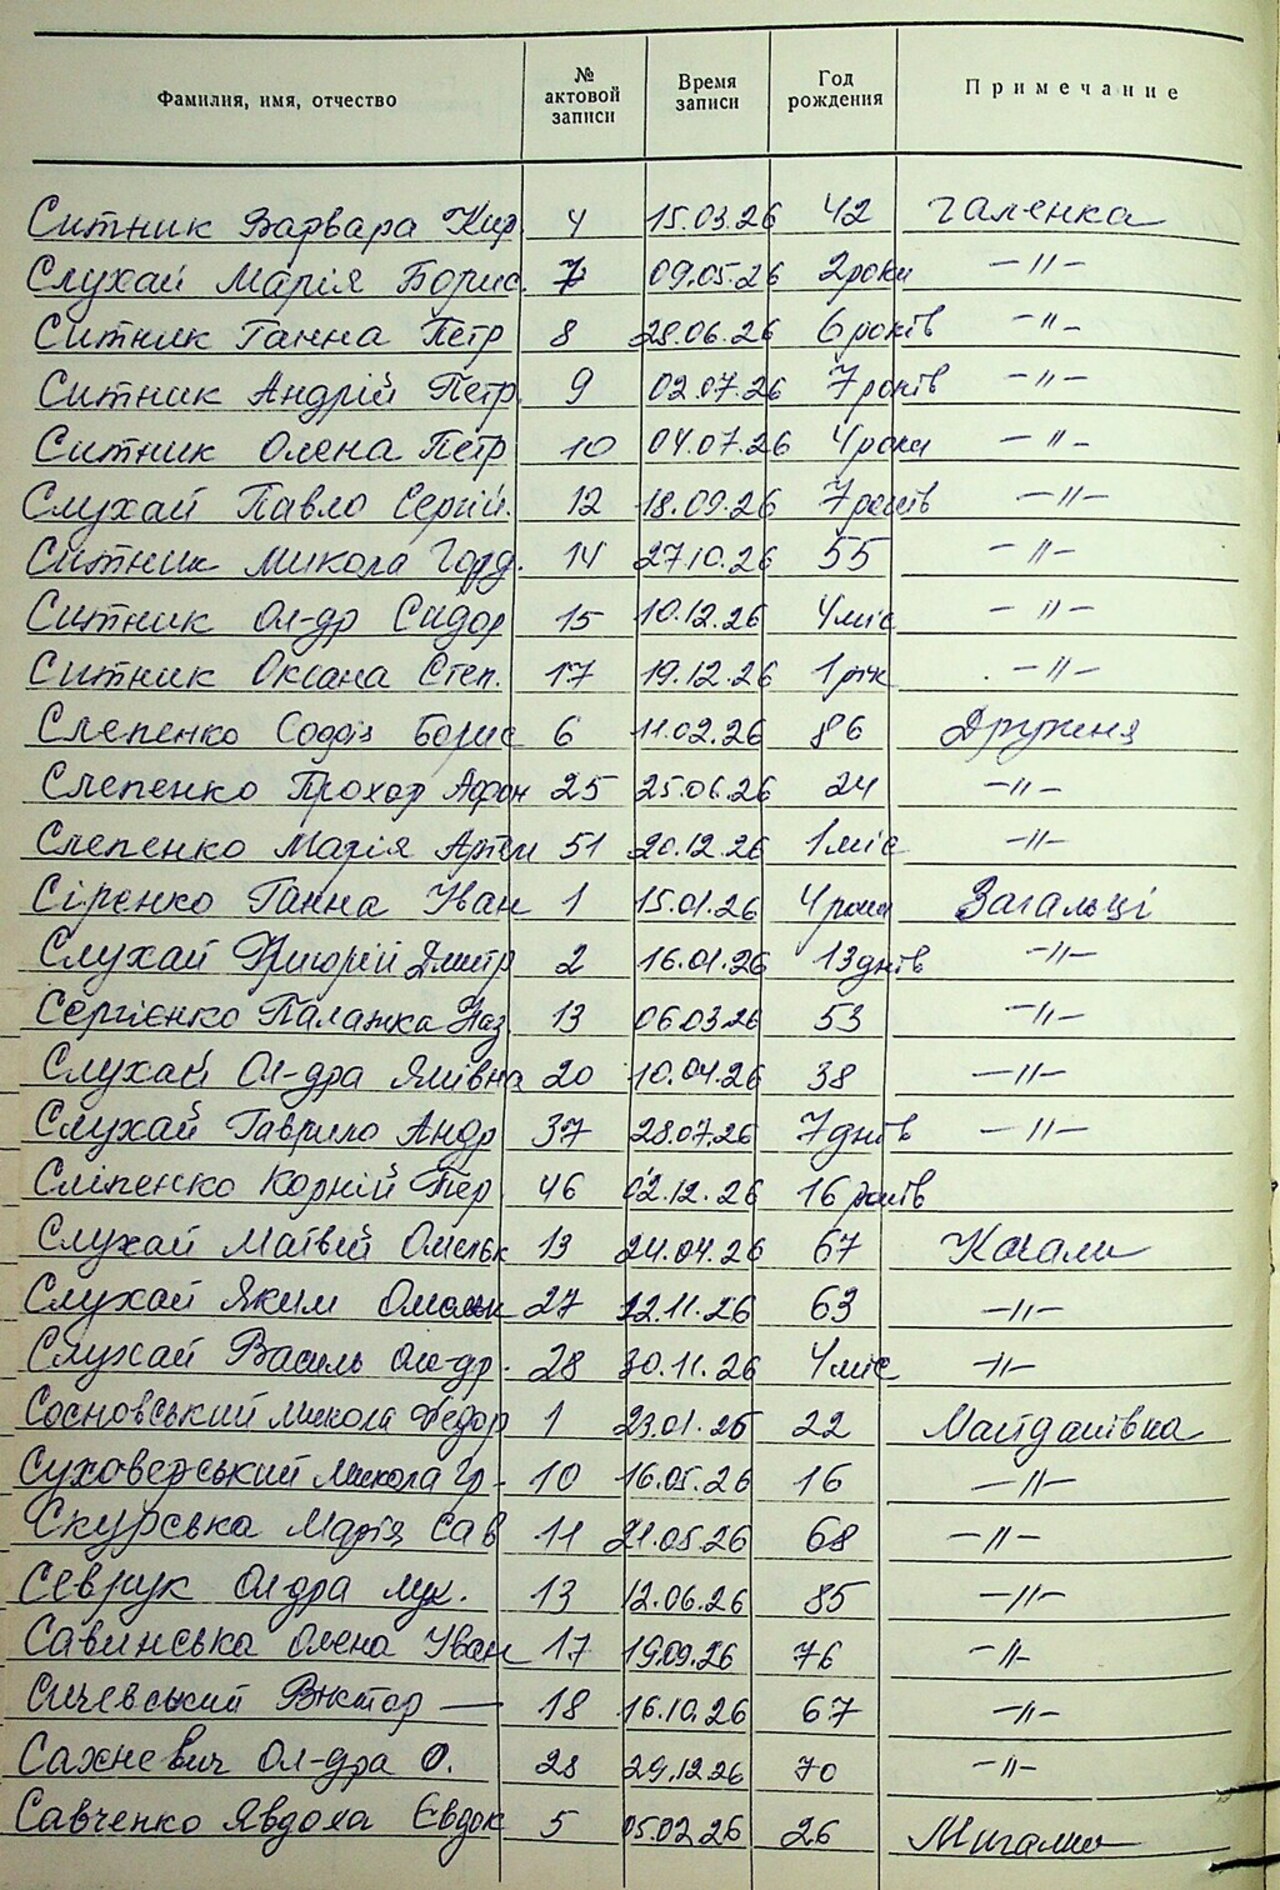 Фамилия, имя, отчество № актовой записи Время записи Год рождения Примечание
Ситник Варвара Кир. 4 15.03.26 42 Галенка
Слухай Марія Борис. 7 09.05.26 2 роки –//–
Ситник Ганна Петр 8 28.06.26 6 років –//–
Ситник Андрій Петр. 9 02.07.26 7 років –//–
Ситник Олена Петр 10 04.07.26 4 роки –//–
Слухай Павло Сергій. 12 18.09.26 7 років –//–
Ситник Микола Горд. 14 27.10.26 55 –//–
Ситник Ол-др Сидор 15 10.12.26 4 міс –//–
Ситник Оксана Степ. 17 19.12.26 1 рік –//–
Слепенко Борис 6 11.02.26 86 Дружня
Слепенко Прохор Афон 25 25.06.26 24 –//–
Слепенко Марія Артем 51 20.12.26 1 міс –//–
Сіренко Ганна Іван 1 15.01.26 4 роки Загальці
Слухай Григорій Дмитр 2 16.01.26 13 днів –//–
Сергієнко Палажка Наз. 13 06.03.26 53 –//–
Слухай Ол-дра Яківна 20 10.04.26 38 –//–
Слухай Гаврило Андр 37 28.07.26 7 днів –//–
Сліпенко Корній Пер 46 02.12.26 16 років
Слухай Матвій Омельк 13 24.04.26 67 Качали
Слухай Яким Омельк 27 22.11.26 63 –//–
Слухай Василь Ол-др. 28 30.11.26 4 міс –//–
Сосновський Микола Федор 1 23.01.26 22 Майданівка
Суховерський Микола Гр. 10 16.05.26 16 –//–
Скурська Марія Сав 11 21.05.26 68 –//–
Севрук Ол-дра Лук. 13 12.06.26 85 –//–
Савинська Олена Іван 17 19.09.26 76 –//–
Сичевський Віктор — 18 16.10.26 67 –//–
Сахневич Ол-дра О. 28 29.12.26 70 –//–
Савченко Явдоха Євдок 5 05.02.26 26 Мигалки